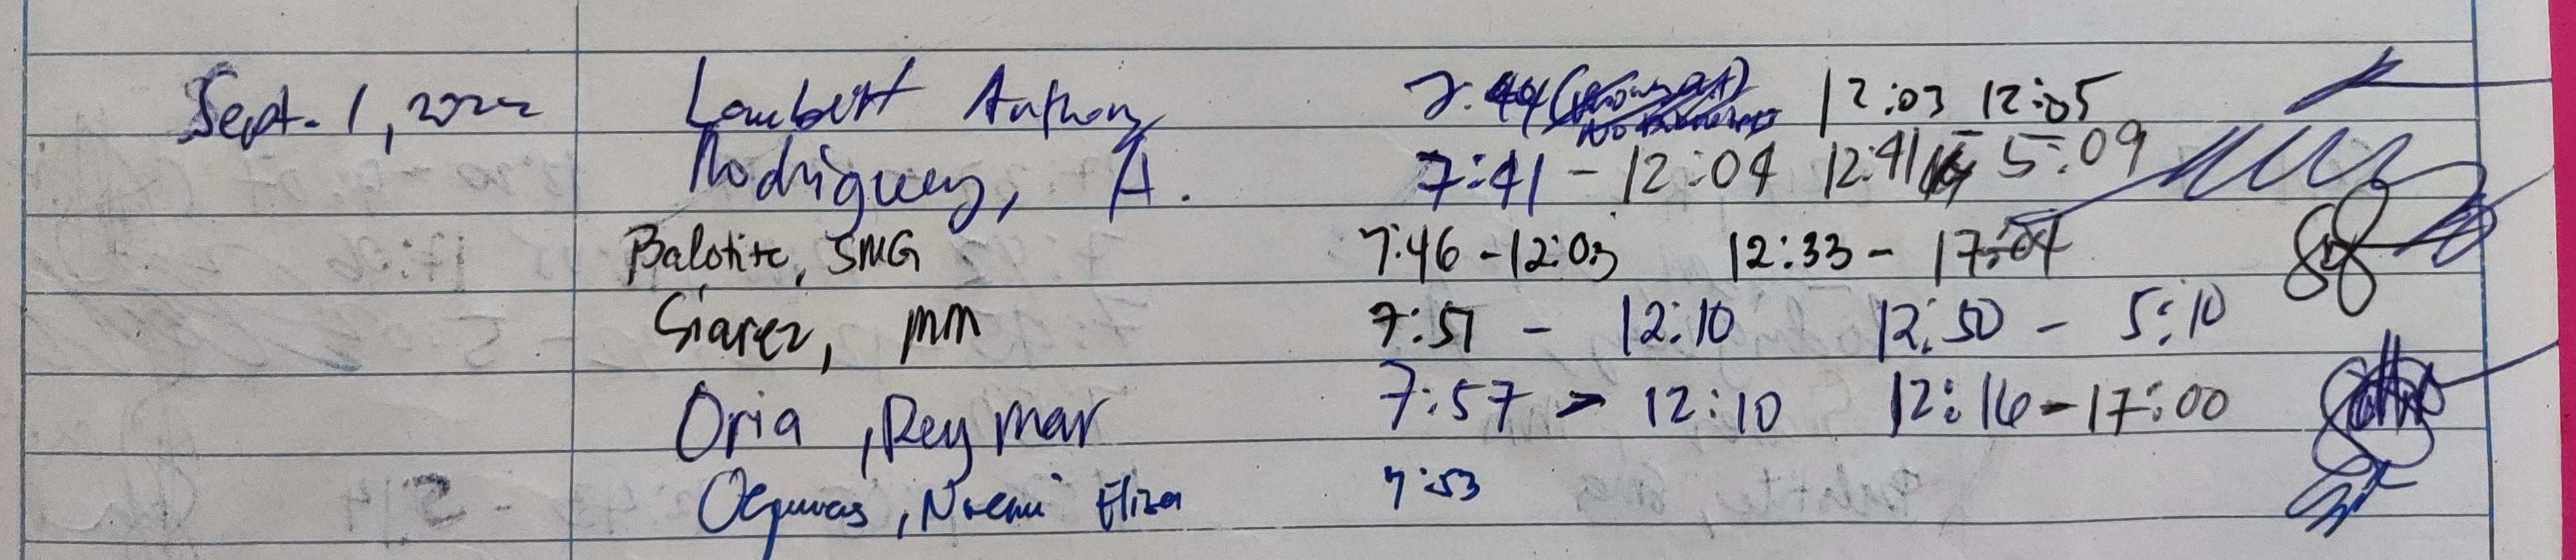 Sept. 1, 2022 Lambert Anthony 7:44 12:03 12:05
Rodriguez, A. 7:41 - 12:04 12:41 5:09
Balotite, SMG 7:46 - 12:03 12:33 - 17:04
Siarez, MM 7:51 - 12:10 12:50 - 5:10
Oria, Reymar 7:57 - 12:10 12:16 - 17:00
Noemi Eliza 7:53